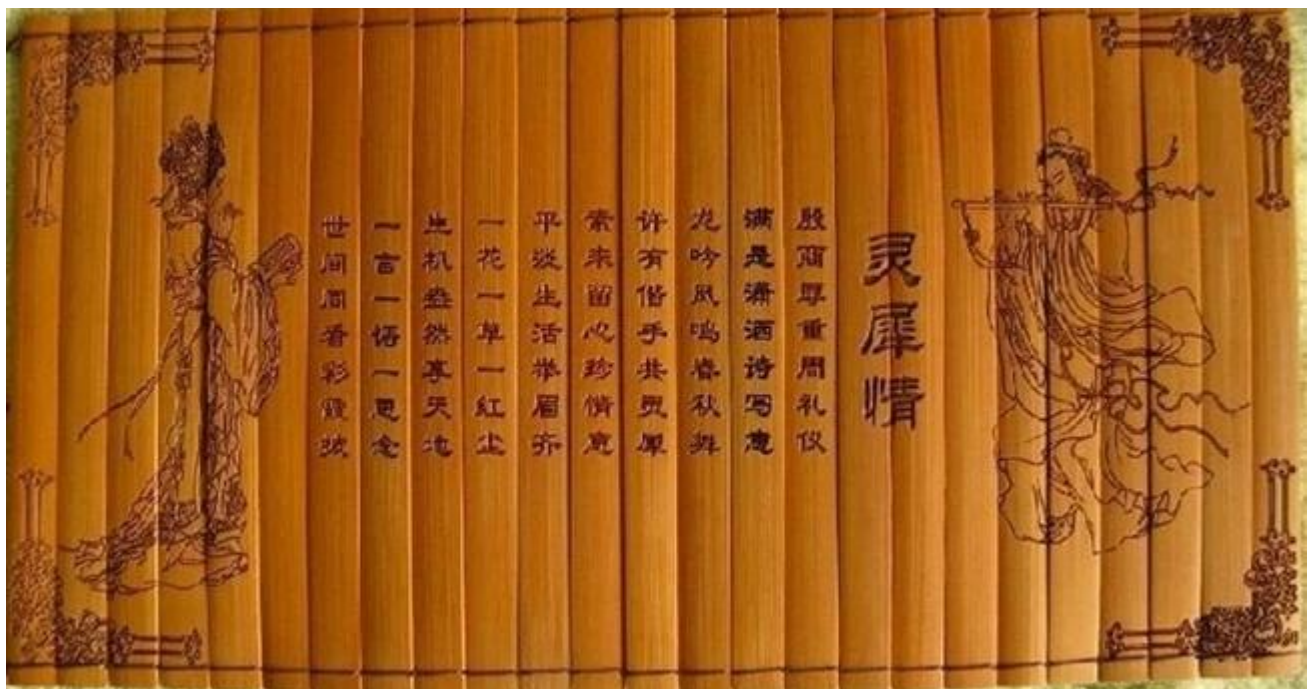 灵犀情
殷商尊重周礼仪
满是潇洒诗写意
龙吟凤鸣春秋舞
许有偕手共灵犀
素来留心珍情意
平淡生活举眉齐
一花一草一红尘
生机盎然享天地
一言一语一思念
世间同看彩霞